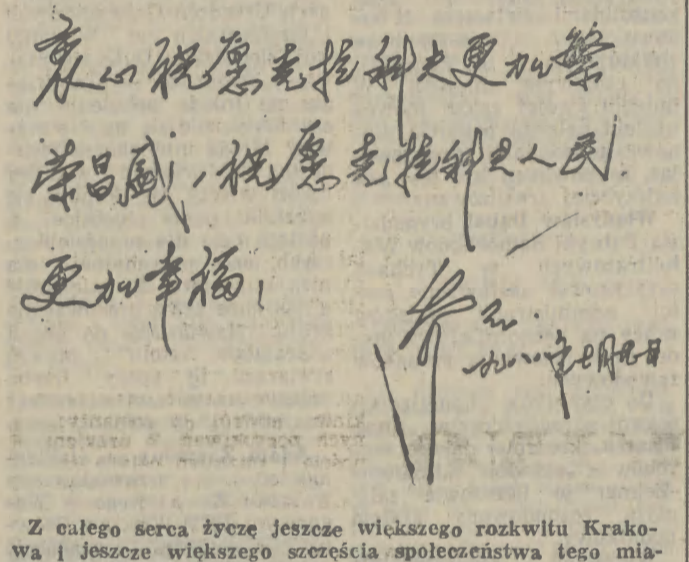 衷心祝愿克拉科夫更加繁
荣昌盛，祝愿克拉科夫人民
更加幸福！
Z całego serca życzę jeszcze większego rozkwitu Krako-
wa i jeszcze większego szczęścia społeczeństwa tego mia-